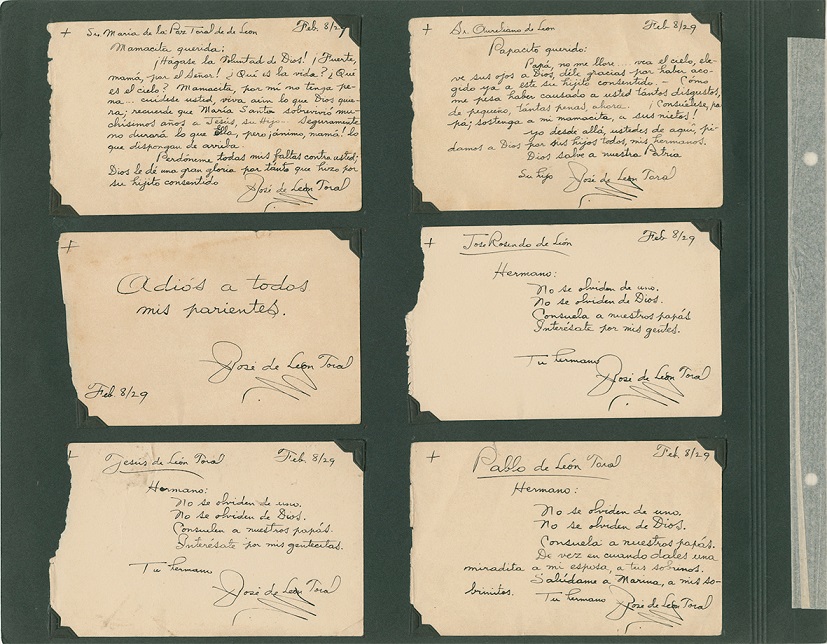 + Sra. Maria de la Paz Toral de de León Feb. 8/29
Mamacita querida:
¡Hágase la Voluntad de Dios! ¡Fuerte,
mamá, por el Señor! ¿Qué es la vida? ¿Qué
es el cielo? Mamacita, por mi no tenga pe-
na... cuídese usted, viva aún lo que Dios quie-
ra; recuerde que María Santa sobrevivió mu-
chísimos años a Jesús, su Hijo. Seguramente
no durará lo que Ella, pero ¡ánimo, mamá! lo
que dispongan de arriba.
Perdóneme todas mis faltas contra usted;
Dios le dé una gran gloria por tanto que hizo por
su hijito consentido
José de León Toral
+ Sr. Aureliano de León Feb. 8/29
Papacito querido:
Papá, no me llore... vea el cielo, ele-
ve sus ojos a Dios, déle gracias por haber aco-
gido ya a este su hijito consentido. - Cómo
me pesa haber causado a usted tantos disgustos,
de pequeño, tantas penas, ahora. ¡Consuélese, pa-
pá; sostenga a mi mamacita, a sus nietos!
yo desde allá, ustedes de aquí, pi-
damos a Dios por sus hijos todos, mis hermanos.
Dios salve a nuestra Patria
Su hijo José de León Toral
+
Adiós a todos
mis parientes.
José de León Toral
Feb. 8/29
+ José Rosendo de León Feb. 8/29
Hermano:
No se olviden de uno.
No se olviden de Dios.
Consuela a nuestros papás
Interésate por mis gentes.
Tu hermano
José de León Toral
+ Jesús de León Toral Feb. 8/29
Hermano:
No se olviden de uno.
No se olviden de Dios.
Consuelen a nuestros papás.
Interésate por mis gentecitas.
Tu hermano
José de León Toral
+ Pablo de León Toral Feb. 8/29
Hermano:
No se olviden de uno.
No se olviden de Dios.
Consuela a nuestros papás.
De vez en cuando dales una
miradita a mi esposa, a tus sobrinos.
Salúdame a Marina, a mis so-
brinitos. Tu hermano José de León Toral